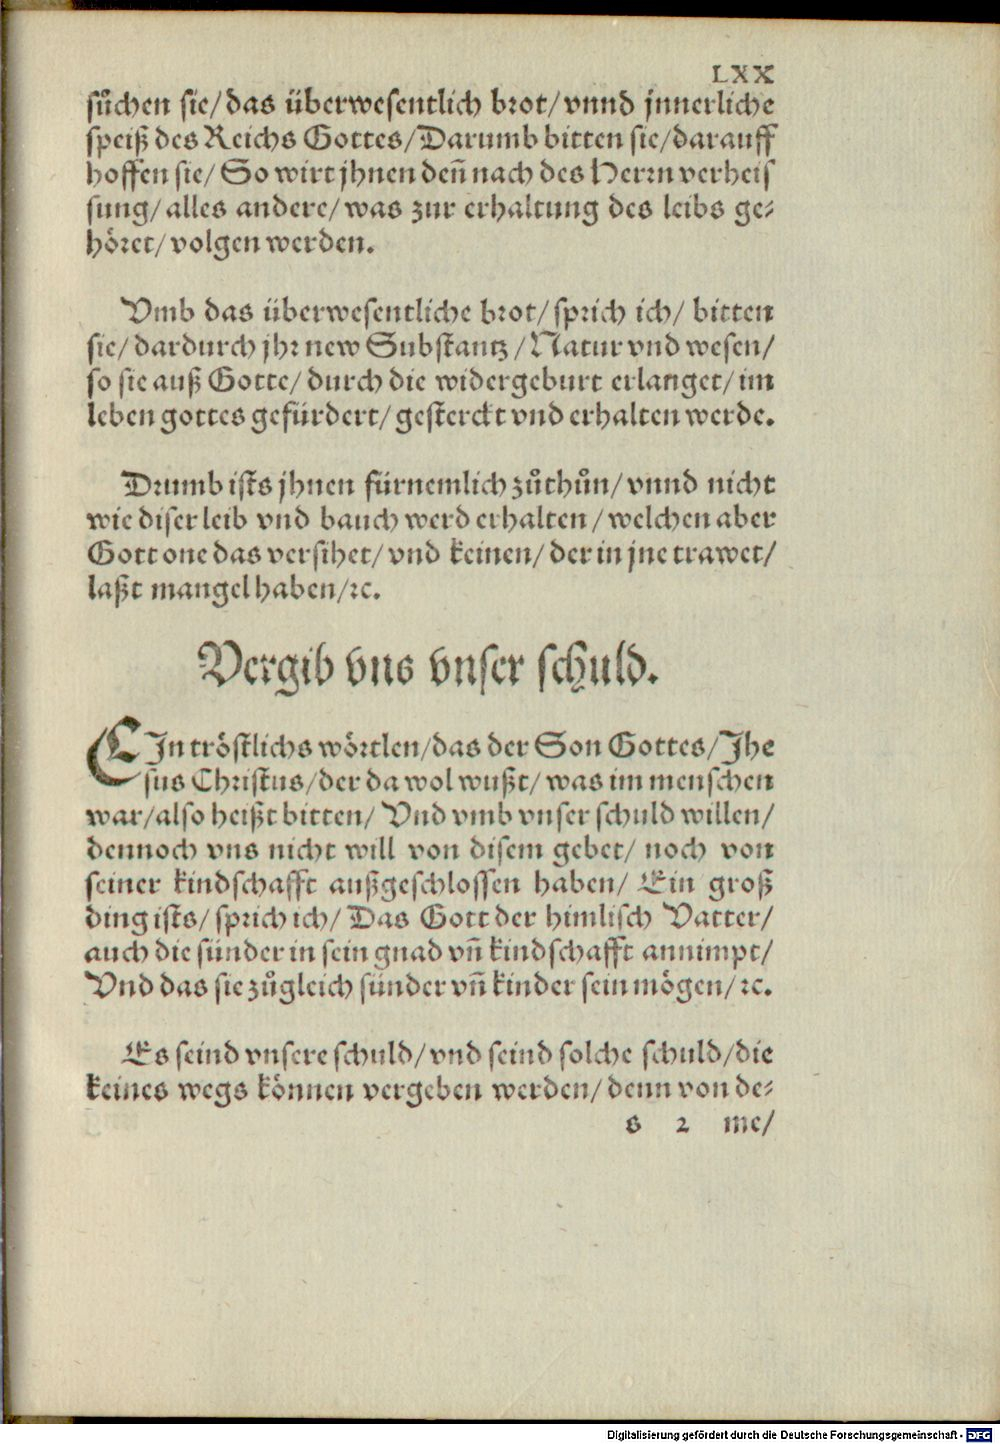 LXX
sůchen sie/das überwesentlich brot/vnnd jnnerliche
speiß des Reichs Gottes/Darumb bitten sie/darauff
hoffen sie/ So wirt jhnen deñ nach des Herrn verheis
sung/alles andere/was zur erhaltung des leibs ge⸗
höret/volgen werden.
Vmb das überwesentliche brot/sprich ich/ bitten
sie/dardurch jhr new Substantz/Natur vnd wesen/
so sie auß Gotte/durch die widergeburt erlanget/im
leben gottes gefürdert/gesterckt vnd erhalten werde.
Drumb ists jhnen fürnemlich zůthůn/vnnd nicht
wie diser leib vnd bauch werd erhalten/welchen aber
Gott one das versihet/vnd keinen/der in jne trawet/
laßt mangel haben/ꝛc.
Vergib vns vnser schuld.
EIn tröstlichs wörtlen/das der Son Gottes/Jhe
sus Christus/der da wol wußt/was im menschen
war/also heißt bitten/ Vnd vmb vnser schuld willen/
dennoch vns nicht will von disem gebet/ noch von
seiner kindschafft außgeschlossen haben/ Ein groß
ding ists/sprich ich/ Das Gott der himlisch Vatter/
auch die sünder in sein gnad vñ kindschafft annimpt/
Vnd das sie zůgleich sünder vñ kinder sein mögen/ꝛc.
Es seind vnsere schuld/vnd seind solche schuld/die
keines wegs können vergeben werden/denn von de⸗
s 2 me/
Digitalisierung gefördert durch die Deutsche Forschungsgemeinschaft - DFG